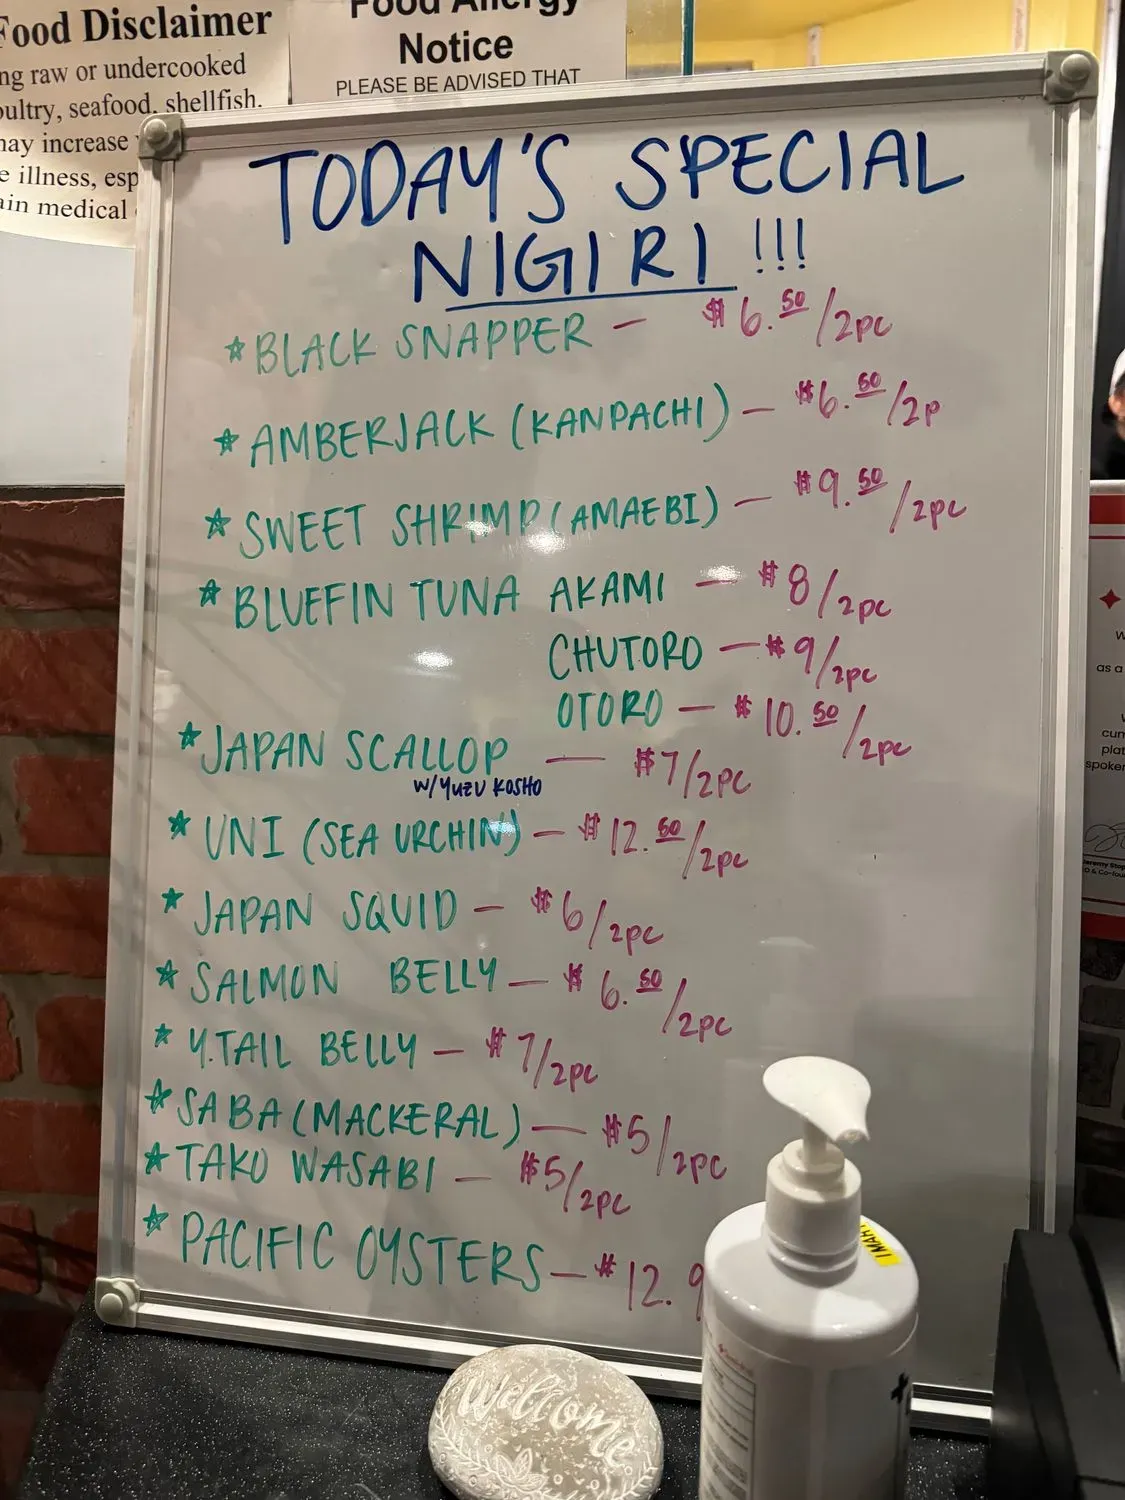 Food Disclaimer
ng raw or undercooked
oultry, seafood, shellfish.
may increase
e illness, esp
ain medical
Food Allergy
Notice
PLEASE BE ADVISED THAT
TODAY'S SPECIAL
NIGIRI !!!
☆ BLACK SNAPPER — $6.50/2PC
☆ AMBERJACK (KANPACHI) — $6.50/2P
☆ SWEET SHRIMP (AMAEBI) — $9.50/2PC
☆ BLUEFIN TUNA AKAMI — $8/2PC
CHUTORO — $9/2PC
OTORO — $10.50/2PC
☆ JAPAN SCALLOP — $7/2PC
W/YUZU KOSHO
☆ UNI (SEA URCHIN) — $12.50/2PC
☆ JAPAN SQUID — $6/2PC
☆ SALMON BELLY — $6.50/2PC
☆ Y.TAIL BELLY — $7/2PC
☆ SABA (MACKERAL) — $5/2PC
☆ TAKO WASABI — $5/2PC
☆ PACIFIC OYSTERS — $12.9
Welcome
as a
cur
plat
spoker